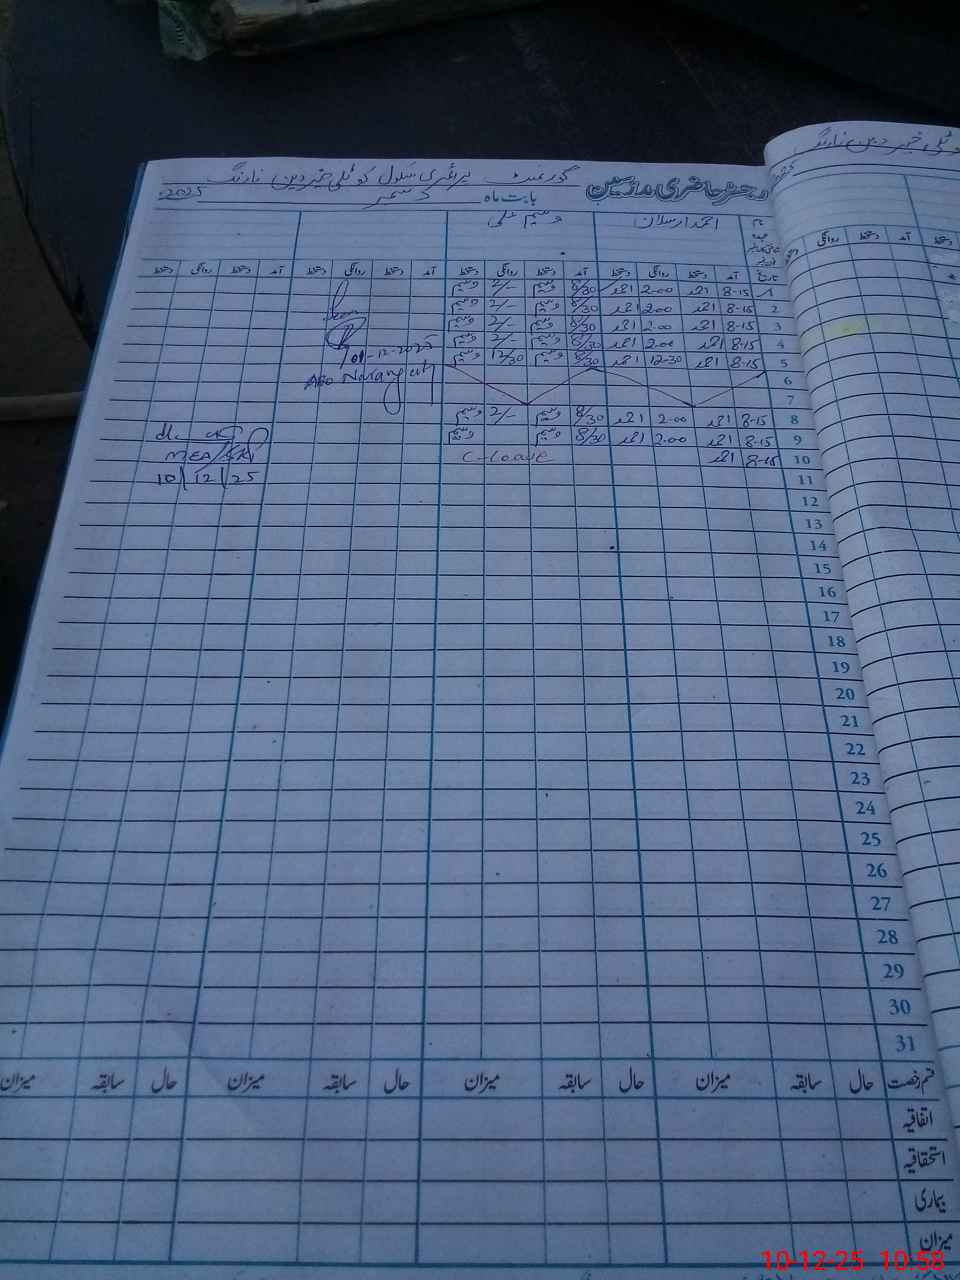 رجسٹر حاضری مدرسین گورنمنٹ پرائمری سکول کوٹلی خیر دین نارنگ
بابت ماہ دسمبر 2025
نام احمد ارسلان وسیم علی
تاریخ آمد دستخط روانگی دستخط آمد دستخط روانگی دستخط آمد دستخط روانگی دستخط آمد دستخط روانگی دستخط
1 8-15 احمد 2-00 احمد 8/30 وسیم 2/- وسیم
2 8-15 احمد 2-00 احمد 8/30 وسیم 2/- وسیم
3 8-15 احمد 2-00 احمد 8/30 وسیم 2/- وسیم
4 8-15 احمد 2-00 احمد 8/30 وسیم 2/- وسیم
01-12-2025
5 8-15 احمد 12-30 احمد 8/30 وسیم 12/30 وسیم
AEO Narang
6
7
8 8-15 احمد 2-00 احمد 8/30 وسیم 2/- وسیم
9 8-15 احمد 2-00 احمد 8/30 وسیم وسیم
10 8-15 احمد C-Leave
MEA/SKP
11
10/12/25
12
13
14
15
16
17
18
19
20
21
22
23
24
25
26
27
28
29
30
31
قسم رخصت حال سابقہ میزان حال سابقہ میزان حال سابقہ میزان حال سابقہ میزان
اتفاقیہ
استحقاقیہ
بیماری
میزان
10-12-25 10:58